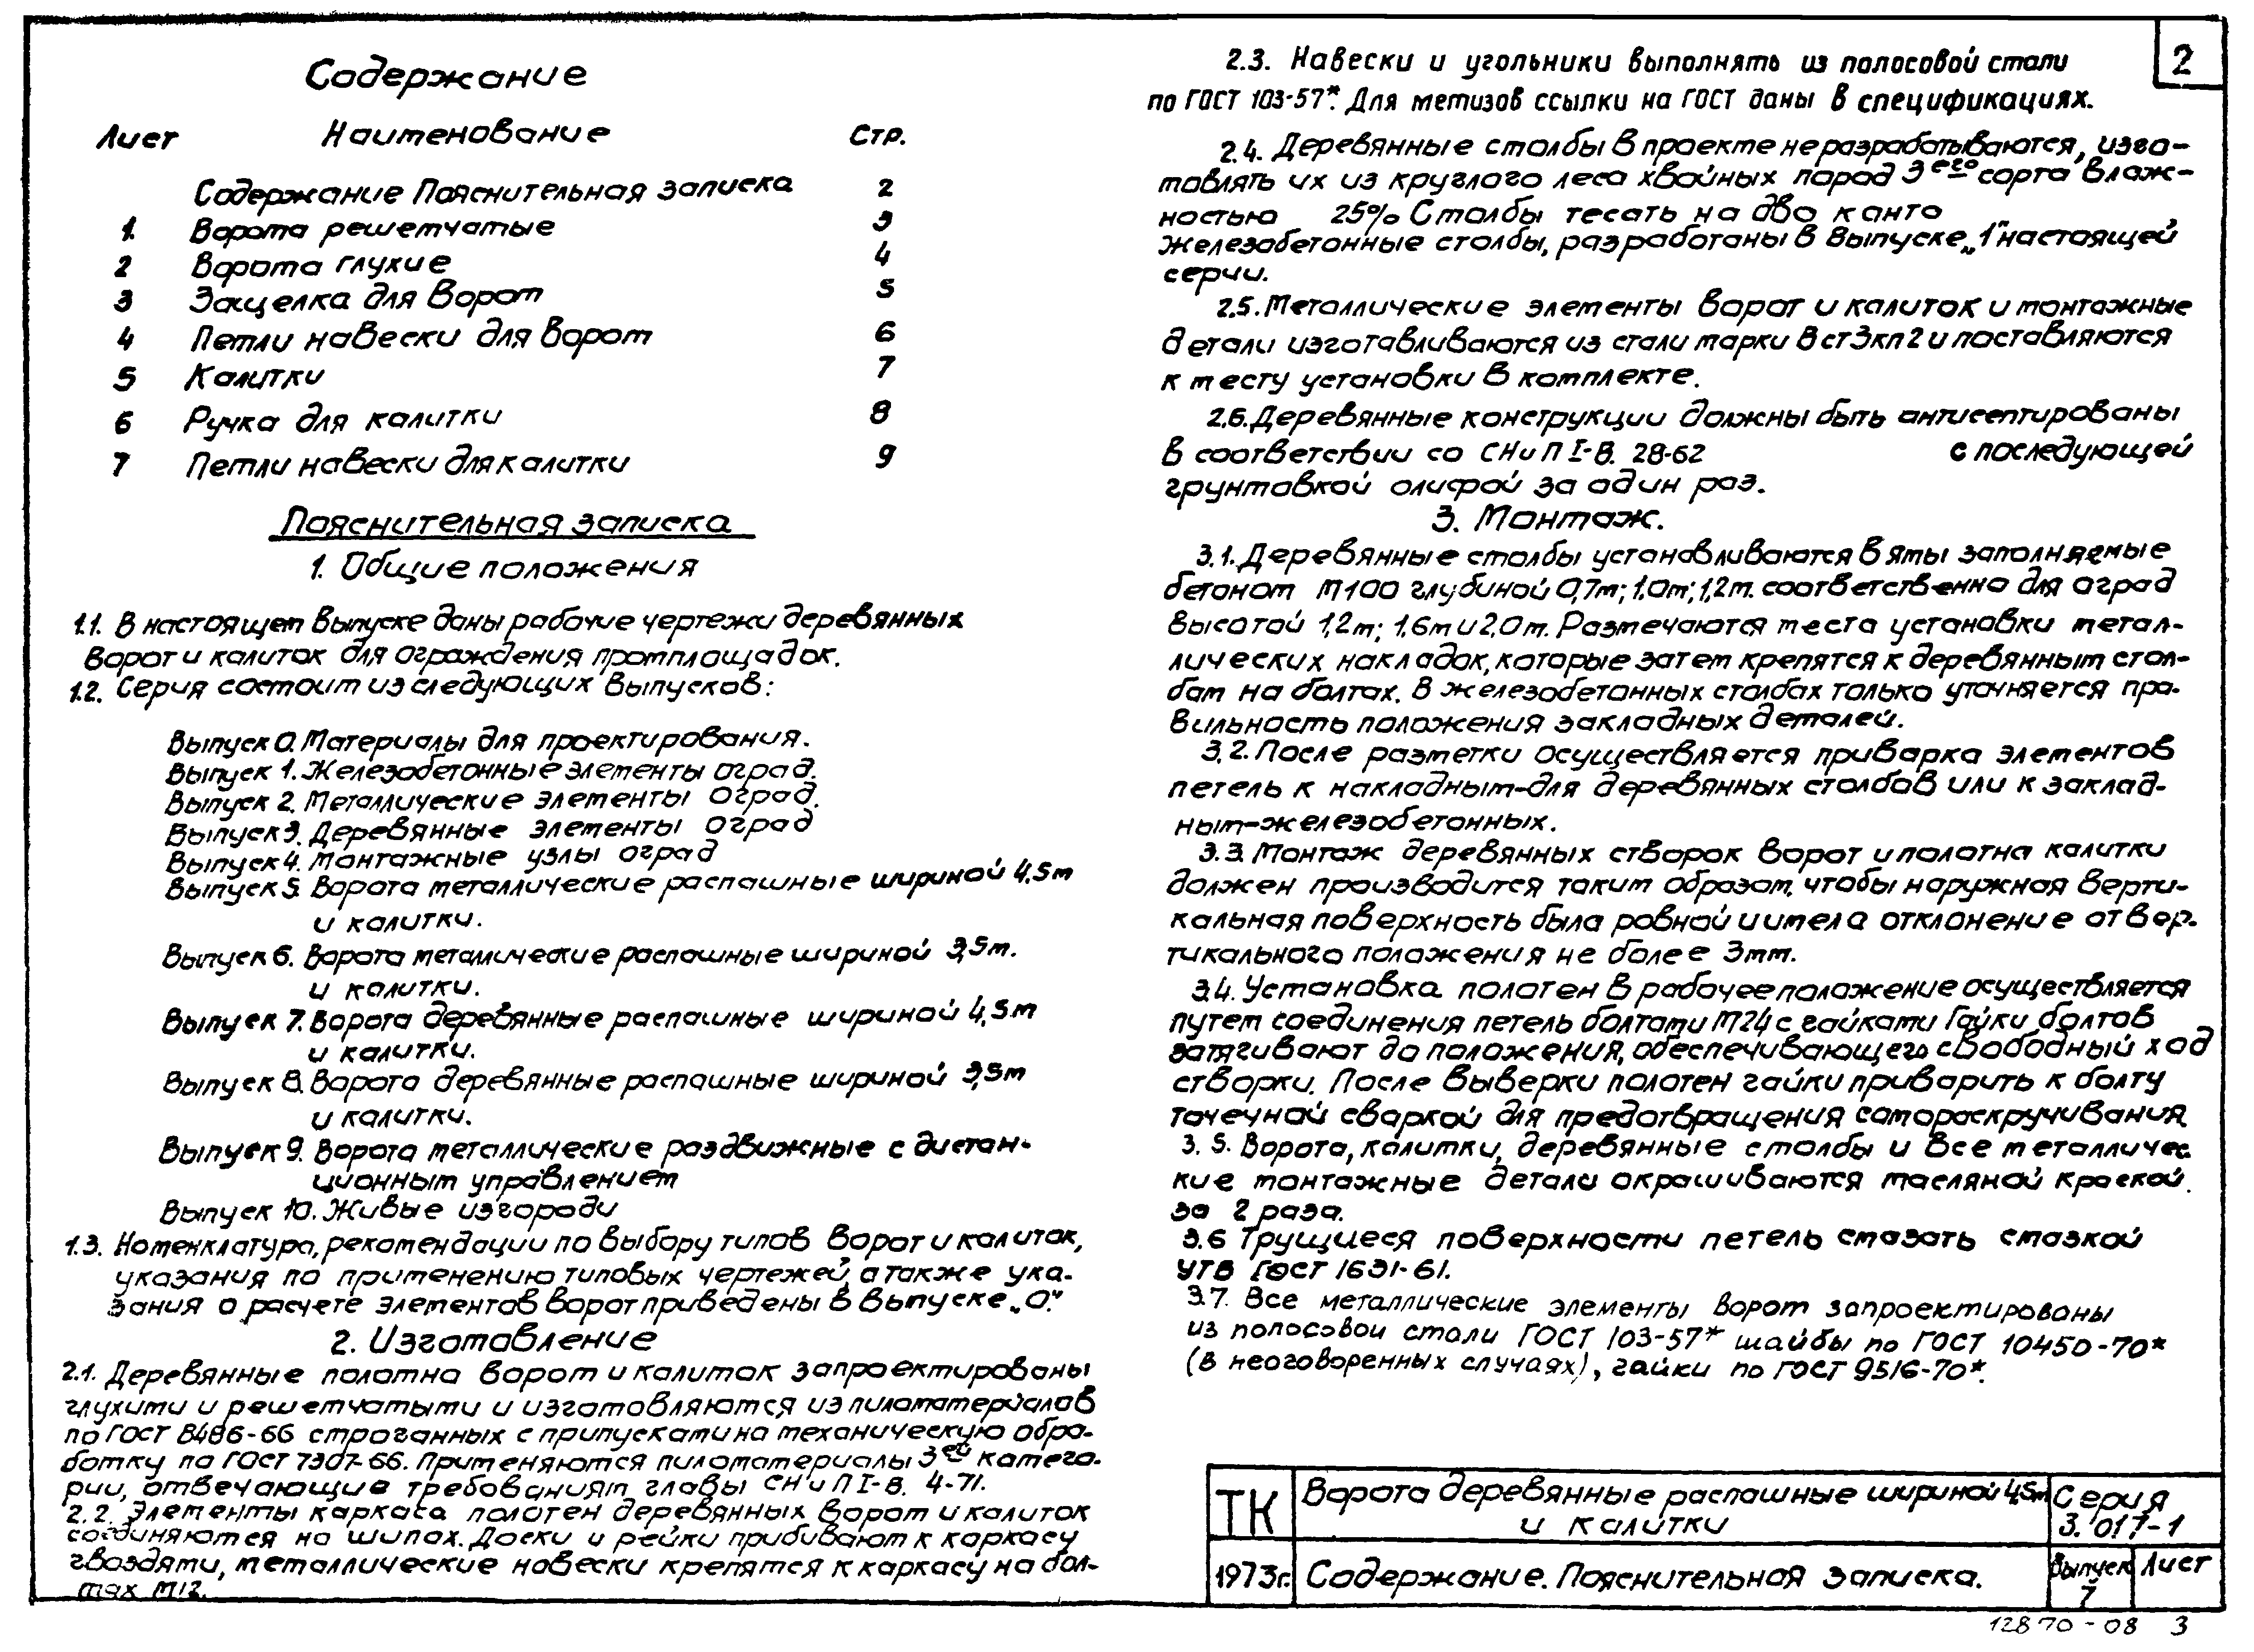 2
Содержание
Лист Наименование Стр.
Содержание Пояснительная записка 2
1. Ворота решетчатые 3
2 Ворота глухие 4
3 Защелка для ворот 5
4 Петли навески для ворот 6
5 Калитки 7
6 Ручка для калитки 8
7 Петли навески для калитки 9
Пояснительная записка
1. Общие положения
1.1. В настоящем выпуске даны рабочие чертежи деревянных
ворот и калиток для ограждения промплощадок.
1.2. Серия состоит из следующих выпусков:
Выпуск 0. Материалы для проектирования.
Выпуск 1. Железобетонные элементы оград.
Выпуск 2. Металлические элементы оград.
Выпуск 3. Деревянные элементы оград
Выпуск 4. Монтажные узлы оград
Выпуск 5. Ворота металлические распашные шириной 4,5м
и калитки.
Выпуск 6. Ворота металлические распашные шириной 3,5м.
и калитки.
Выпуск 7. Ворота деревянные распашные шириной 4,5м
и калитки.
Выпуск 8. Ворота деревянные распашные шириной 3,5м
и калитки.
Выпуск 9. Ворота металлические раздвижные с дистан-
ционным управлением
Выпуск 10. Живые изгороди
1.3. Номенклатура, рекомендации по выбору типов ворот и калиток,
указания по применению типовых чертежей, а также ука-
зания о расчете элементов ворот приведены в выпуске „0."
2. Изготовление
2.1. Деревянные полотна ворот и калиток запроектированы
глухими и решетчатыми и изготовляются из пиломатериалов
по ГОСТ 8486-66 строганных с припусками на механическую обра-
ботку по ГОСТ 7307-66. Применяются пиломатериалы 3ей катего-
рии, отвечающие требованиям главы СНиП I-В. 4-71.
2.2. Элементы каркаса полотен деревянных ворот и калиток
соединяются на шипах. Доски и рейки прибивают к каркасу
гвоздями, металлические навески крепятся к каркасу на бол-
тах М12.
2.3. Навески и угольники выполнять из полосовой стали
по ГОСТ 103-57*. Для метизов ссылки на ГОСТ даны в спецификациях.
2.4. Деревянные столбы в проекте не разрабатываются, изго-
товлять их из круглого леса хвойных пород 3его сорта влаж-
ностью 25% Столбы тесать на два канта
железобетонные столбы, разработаны в выпуске „1" настоящей
серии.
2.5. Металлические элементы ворот и калиток и монтажные
детали изготавливаются из стали марки Вст3кп2 и поставляются
к месту установки в комплекте.
2.6. Деревянные конструкции должны быть антисептированы
в соответствии со СНиП I-В. 28-62 с последующей
грунтовкой олифой за один раз.
3. Монтаж.
3.1. Деревянные столбы устанавливаются в ямы заполняемые
бетоном М100 глубиной 0,7м; 1,0м; 1,2м. соответственно для оград
высотой 1,2м; 1,6м и 2,0м. Размечаются места установки метал-
лических накладок, которые затем крепятся к деревянным стол-
бам на болтах. В железобетонных столбах только уточняется пра-
вильность положения закладных деталей.
3.2. После разметки осуществляется приварка элементов
петель к накладным-для деревянных столбов или к заклад-
ным-железобетонных.
3.3. Монтаж деревянных створок ворот и полотна калитки
должен производится таким образом, чтобы наружная верти-
кальная поверхность была ровной и имела отклонение от вер-
тикального положения не более 3мм.
3.4. Установка полотен в рабочее положение осуществляется
путем соединения петель болтами М24 с гайками Гайки болтов
затягивают до положения, обеспечивающего свободный ход
створки. После выверки полотен гайки приварить к болту
точечной сваркой для предотвращения самораскручивания
3.5. Ворота, калитки, деревянные столбы и все металличес
кие монтажные детали окрашиваются масляной краской.
за 2 раза.
3.6 Трущиеся поверхности петель смазать смазкой
УТВ ГОСТ 1631-61.
3.7. Все металлические элементы ворот запроектированы
из полосовой стали ГОСТ 103-57* шайбы по ГОСТ 10450-70*
(в неоговоренных случаях), гайки по ГОСТ 9516-70*.
ТК Ворота деревянные распашные шириной 4,5м и калитки Серия 3.017-1
1973г. Содержание. Пояснительная записка. Выпуск 7 Лист
12870-08 3